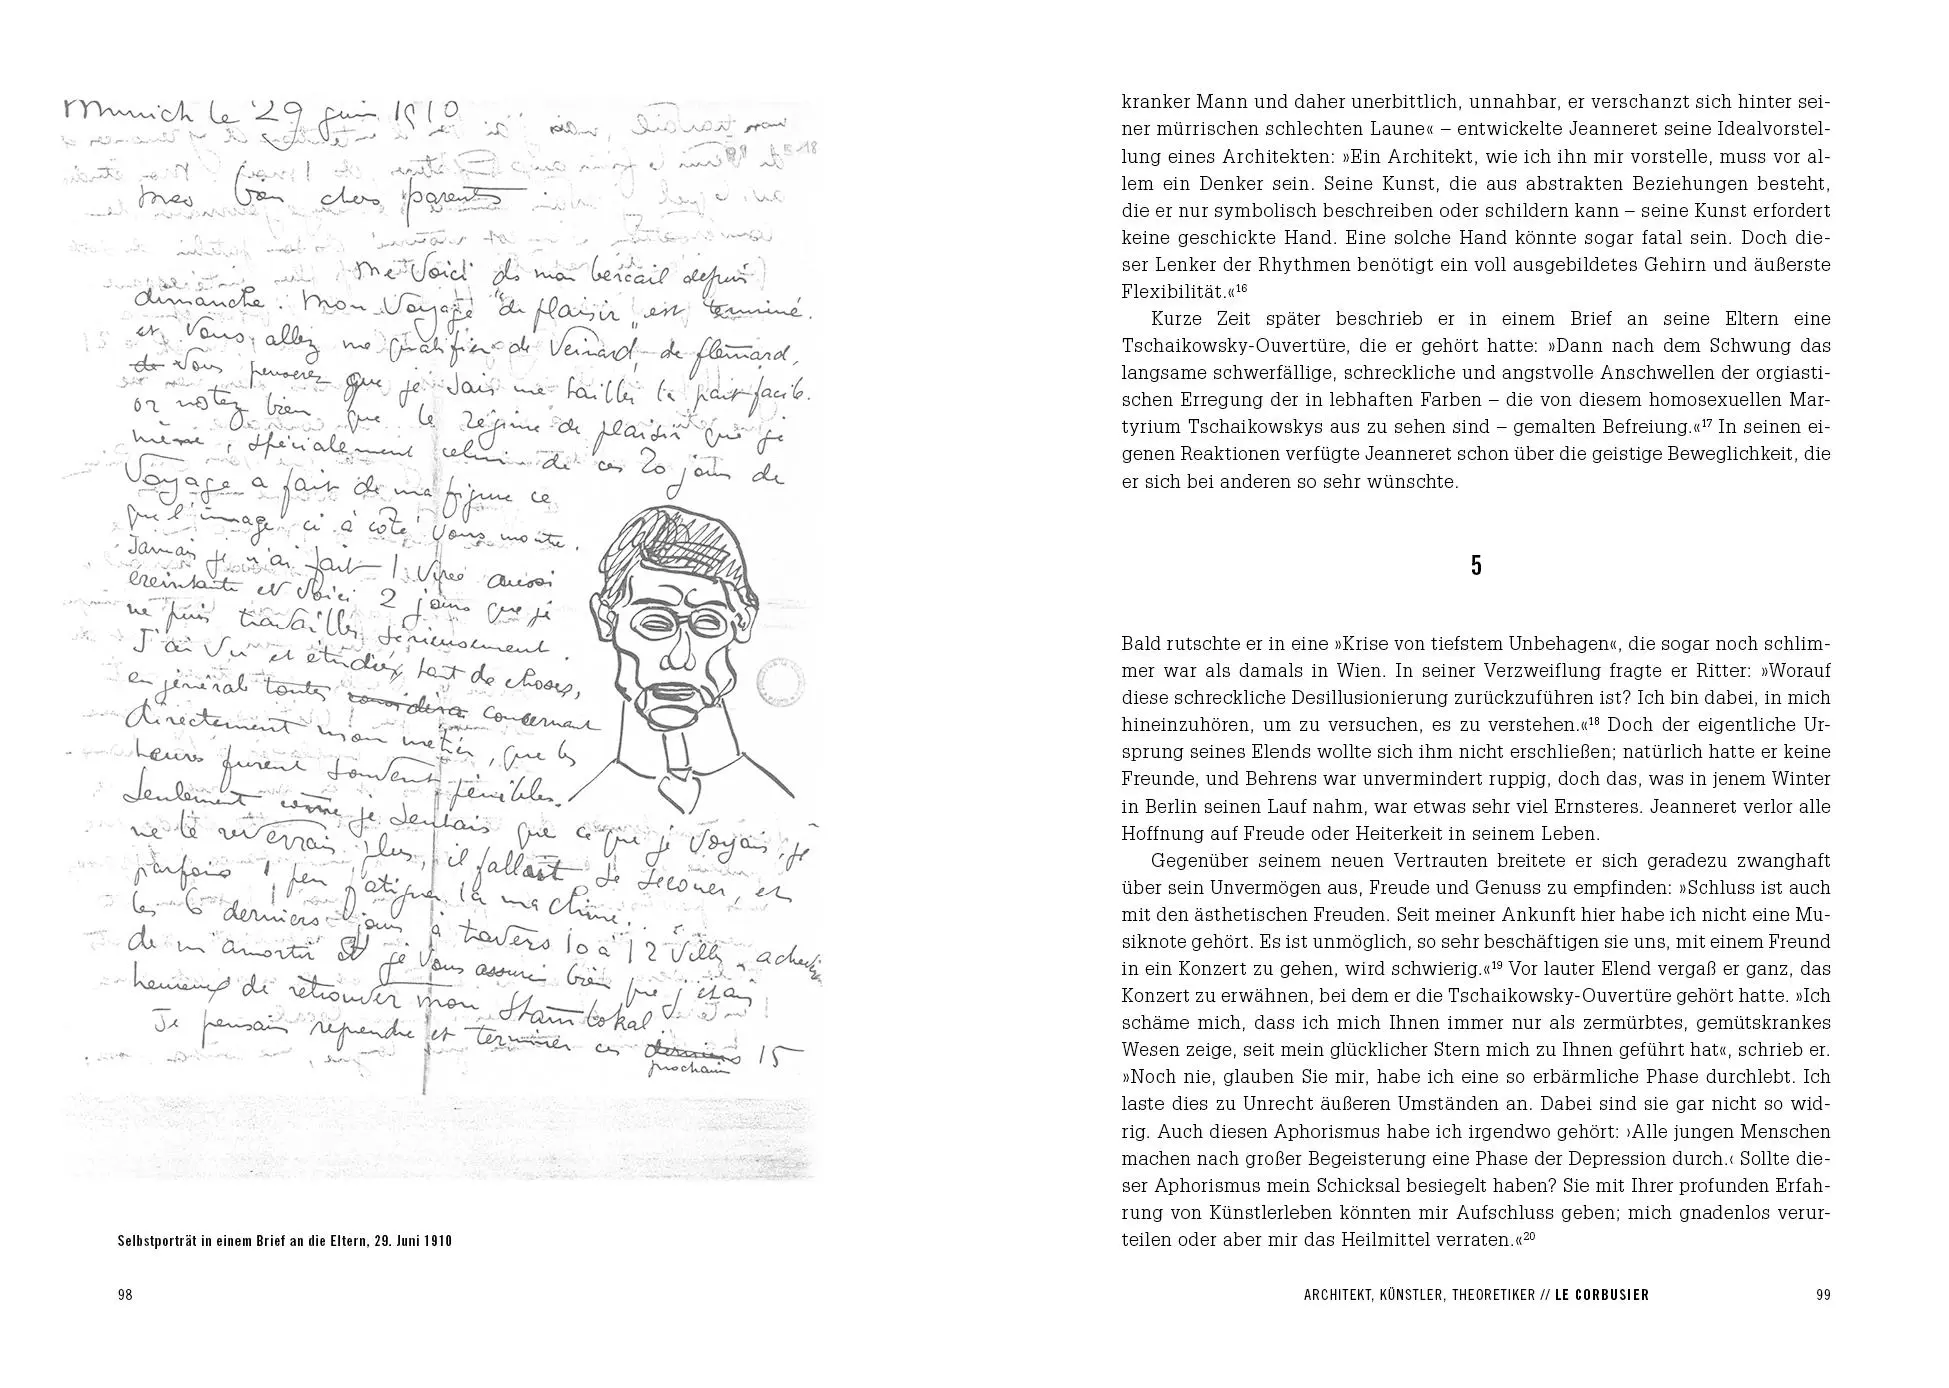 Munich le 29 juin 1910
mes bien chers parents
Me voici ds mon bercail depuis
dimanche. Mon Voyage "de plaisir" est terminé.
et vous allez me qualifier de veinard, de flemard,
de vous penserez que je sais me tailler la part facile.
or notez bien que le régime de plaisir que je
mène, spécialement celui de ces 20 jours de
Voyage a fait de ma figure ce
que l'image ci à côté vous montre.
Jamais je n'ai fait 1 virée aussi
éreintante et voici 2 jours que je
ne puis travailler sérieusement.
J'ai vu et étudié tant de choses,
en général toutes concernant
directement mon métier, que les
heures furent souvent pénibles.
Seulement comme je sentais que ce que je voyais, je
ne le reverrais plus, il fallait se secouer, et
parfois 1 peu fatiguer la machine.
les 6 derniers jours à travers 10 à 12 villes
de m'amortir et je vous assure bien que j'étais
heureux de retrouver mon Stammlokal.
Je pensais reprendre et terminer ces derniers 15
prochains
Selbstporträt in einem Brief an die Eltern, 29. Juni 1910
98
kranker Mann und daher unerbittlich, unnahbar, er verschanzt sich hinter sei-
ner mürrischen schlechten Laune« – entwickelte Jeanneret seine Idealvorstel-
lung eines Architekten: »Ein Architekt, wie ich ihn mir vorstelle, muss vor al-
lem ein Denker sein. Seine Kunst, die aus abstrakten Beziehungen besteht,
die er nur symbolisch beschreiben oder schildern kann – seine Kunst erfordert
keine geschickte Hand. Eine solche Hand könnte sogar fatal sein. Doch die-
ser Lenker der Rhythmen benötigt ein voll ausgebildetes Gehirn und äußerste
Flexibilität.«¹⁶
Kurze Zeit später beschrieb er in einem Brief an seine Eltern eine
Tschaikowsky-Ouvertüre, die er gehört hatte: »Dann nach dem Schwung das
langsame schwerfällige, schreckliche und angstvolle Anschwellen der orgiasti-
schen Erregung der in lebhaften Farben – die von diesem homosexuellen Mar-
tyrium Tschaikowskys aus zu sehen sind – gemalten Befreiung.«¹⁷ In seinen ei-
genen Reaktionen verfügte Jeanneret schon über die geistige Beweglichkeit, die
er sich bei anderen so sehr wünschte.
5
Bald rutschte er in eine »Krise von tiefstem Unbehagen«, die sogar noch schlim-
mer war als damals in Wien. In seiner Verzweiflung fragte er Ritter: »Worauf
diese schreckliche Desillusionierung zurückzuführen ist? Ich bin dabei, in mich
hineinzuhören, um zu versuchen, es zu verstehen.«¹⁸ Doch der eigentliche Ur-
sprung seines Elends wollte sich ihm nicht erschließen; natürlich hatte er keine
Freunde, und Behrens war unvermindert ruppig, doch das, was in jenem Winter
in Berlin seinen Lauf nahm, war etwas sehr viel Ernsteres. Jeanneret verlor alle
Hoffnung auf Freude oder Heiterkeit in seinem Leben.
Gegenüber seinem neuen Vertrauten breitete er sich geradezu zwanghaft
über sein Unvermögen aus, Freude und Genuss zu empfinden: »Schluss ist auch
mit den ästhetischen Freuden. Seit meiner Ankunft hier habe ich nicht eine Mu-
siknote gehört. Es ist unmöglich, so sehr beschäftigen sie uns, mit einem Freund
in ein Konzert zu gehen, wird schwierig.«¹⁹ Vor lauter Elend vergaß er ganz, das
Konzert zu erwähnen, bei dem er die Tschaikowsky-Ouvertüre gehört hatte. »Ich
schäme mich, dass ich mich Ihnen immer nur als zermürbtes, gemütskrankes
Wesen zeige, seit mein glücklicher Stern mich zu Ihnen geführt hat«, schrieb er.
»Noch nie, glauben Sie mir, habe ich eine so erbärmliche Phase durchlebt. Ich
laste dies zu Unrecht äußeren Umständen an. Dabei sind sie gar nicht so wid-
rig. Auch diesen Aphorismus habe ich irgendwo gehört: ›Alle jungen Menschen
machen nach großer Begeisterung eine Phase der Depression durch.‹ Sollte die-
ser Aphorismus mein Schicksal besiegelt haben? Sie mit Ihrer profunden Erfah-
rung von Künstlerleben könnten mir Aufschluss geben; mich gnadenlos verur-
teilen oder aber mir das Heilmittel verraten.«²⁰
ARCHITEKT, KÜNSTLER, THEORETIKER // LE CORBUSIER
99